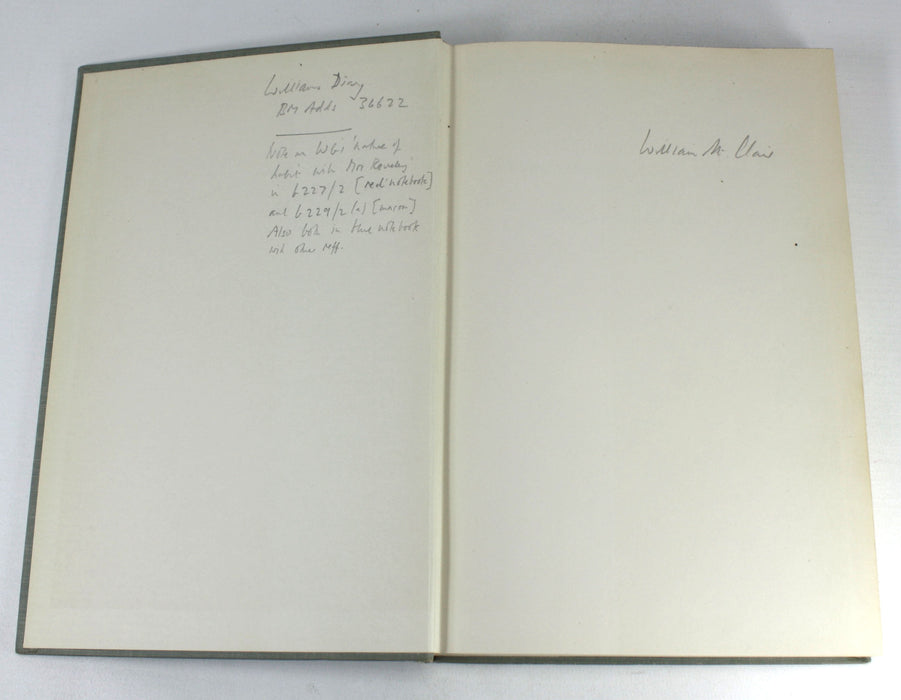 Williams Diary
BM Adds 36622
Note on WG's 'nature of
habit' with Mrs Reveley
in b 227/2 [red notebook]
and b 229/2 (a) [maroon]
Also both in blue notebook
with other reff.
William St Clair